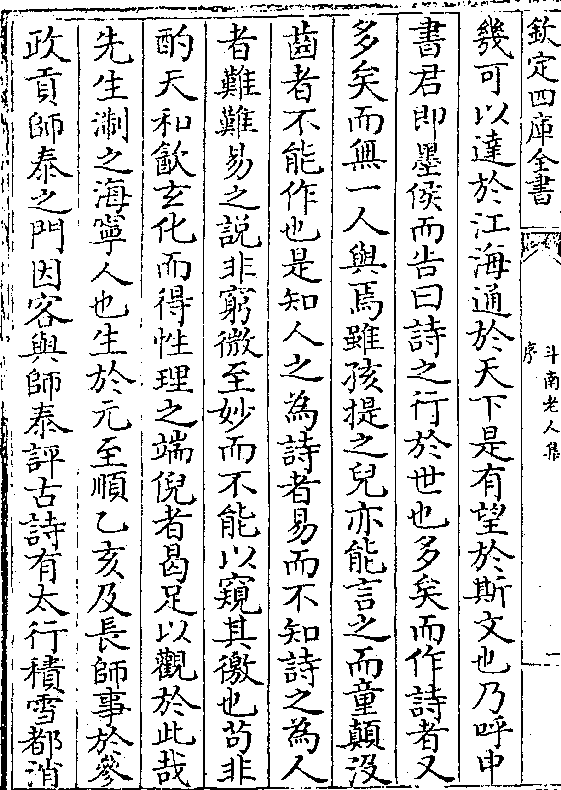 欽定四庫全書
斗南老人集
序
一
幾可以達於江海通於天下是有望於斯文也乃呼中
書君即墨侯而告曰詩之行於世也多矣而作詩者又
多矣而無一人與焉雖孩提之兒亦能言之而童顛沒
齒者不能作也是知人之為詩者易而不知詩之為人
者難難易之説非窮微至妙而不能以窺其徼也茍非
酌天和歙玄化而得性理之端倪者曷足以觀於此哉
先生淛之海寧人也生於元至順乙亥及長師事於參
政貢師泰之門因客與師泰評古詩有太行積雪都消